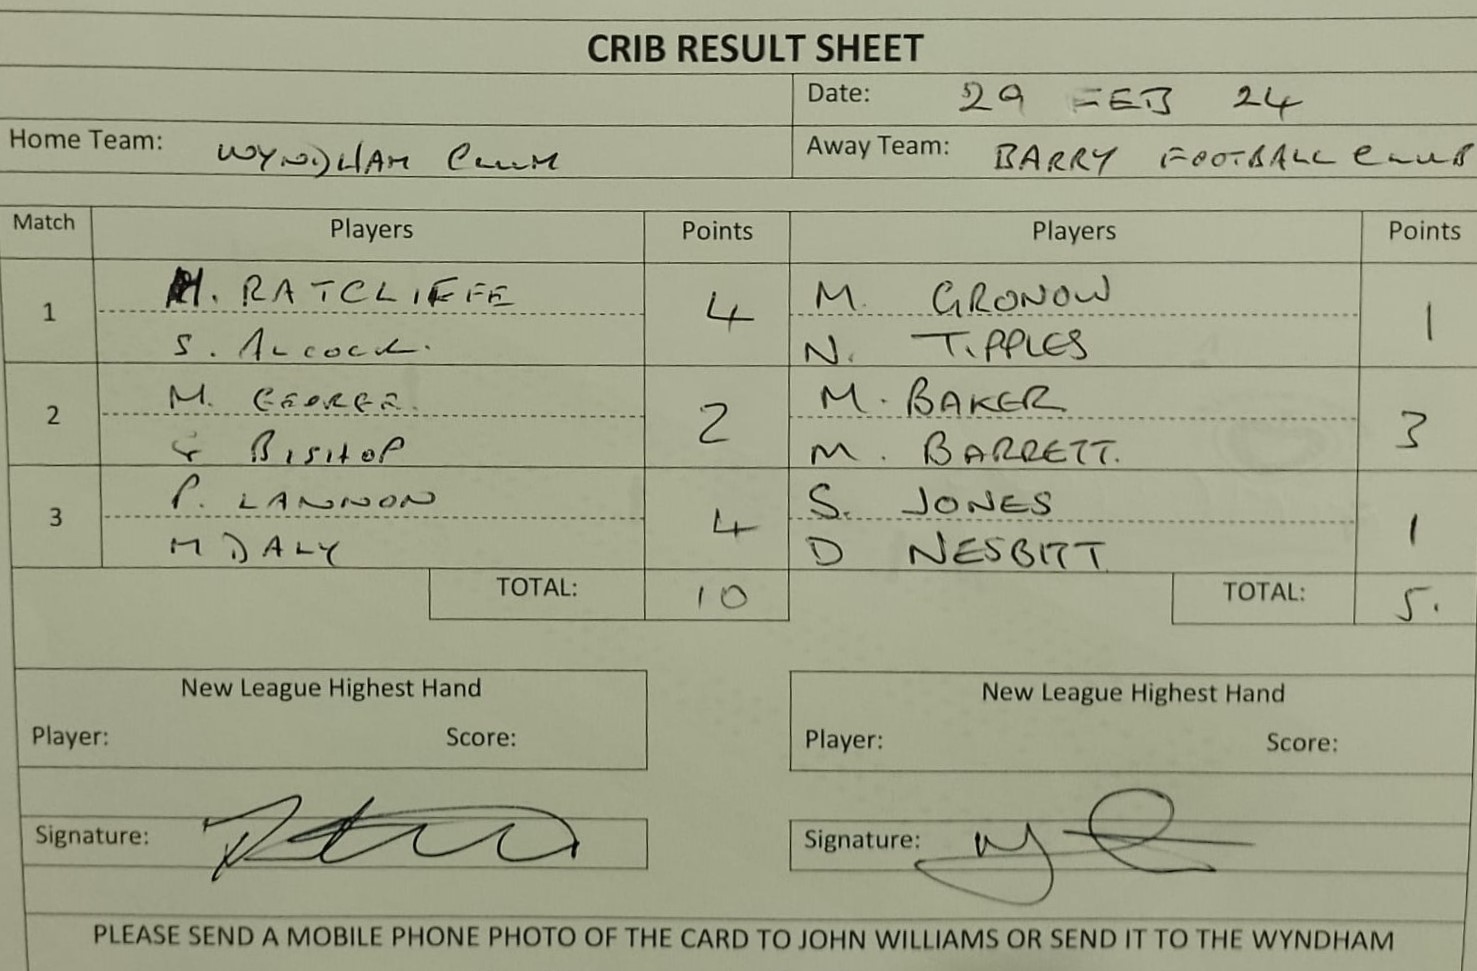 CRIB RESULT SHEET
Date: 29 FEB 24
Home Team: WYNDHAM CLUB
Away Team: BARRY FOOTBALL CLUB
Match Players Points Players Points
1
H. RATCLIFFE
S. ALCOCK.
4
M. GRONOW
N. TIPPLES
1
2
M. GEORGE.
G BISHOP
2
M. BAKER
M. BARRETT.
3
3
P. LANNON
M DALY
4
S. JONES
D NESBITT
1
TOTAL: 10 TOTAL: 5.
New League Highest Hand
Player: Score:
New League Highest Hand
Player: Score:
Signature:
Signature:
PLEASE SEND A MOBILE PHONE PHOTO OF THE CARD TO JOHN WILLIAMS OR SEND IT TO THE WYNDHAM